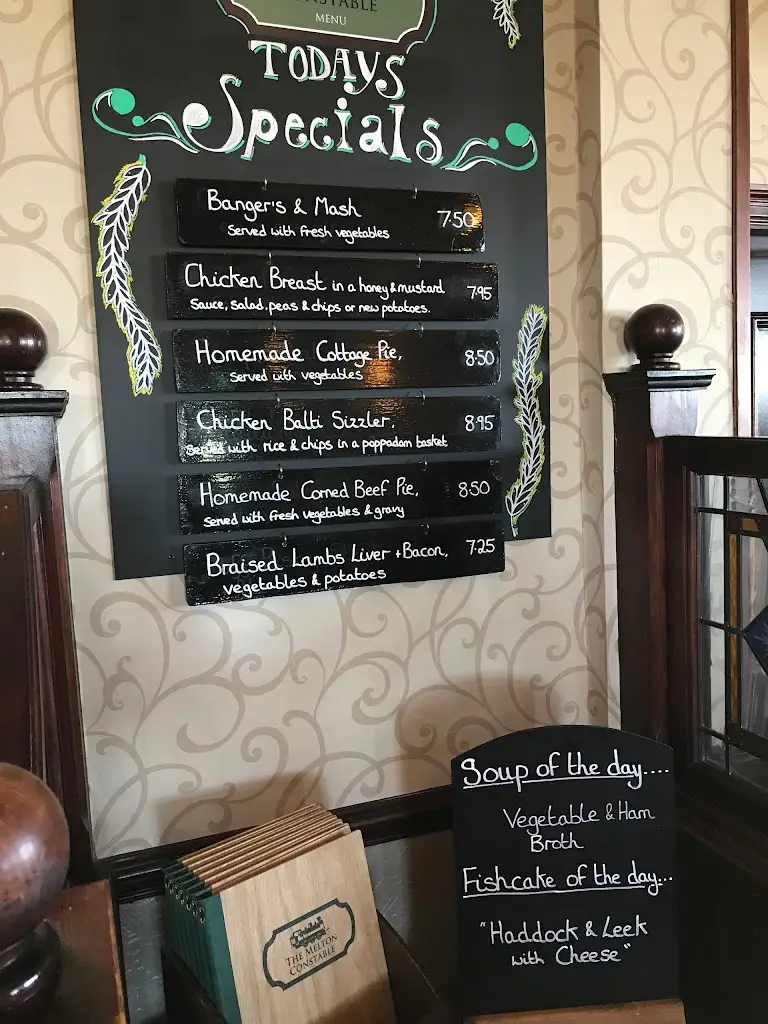 CONSTABLE
MENU
TODAYS
Specials
Banger's & Mash 7.50
Served with fresh vegetables
Chicken Breast in a honey & mustard 7.95
Sauce, salad, peas & chips or new potatoes.
Homemade Cottage Pie, 8.50
Served with vegetables
Chicken Balti Sizzler, 8.95
Served with rice & chips in a poppadom basket
Homemade Corned Beef Pie, 8.50
Served with fresh vegetables & gravy
Braised Lambs Liver + Bacon, 7.25
vegetables & potatoes
Soup of the day....
Vegetable & Ham
Broth
Fishcake of the day...
"Haddock & Leek
with Cheese"
THE MELTON
CONSTABLE